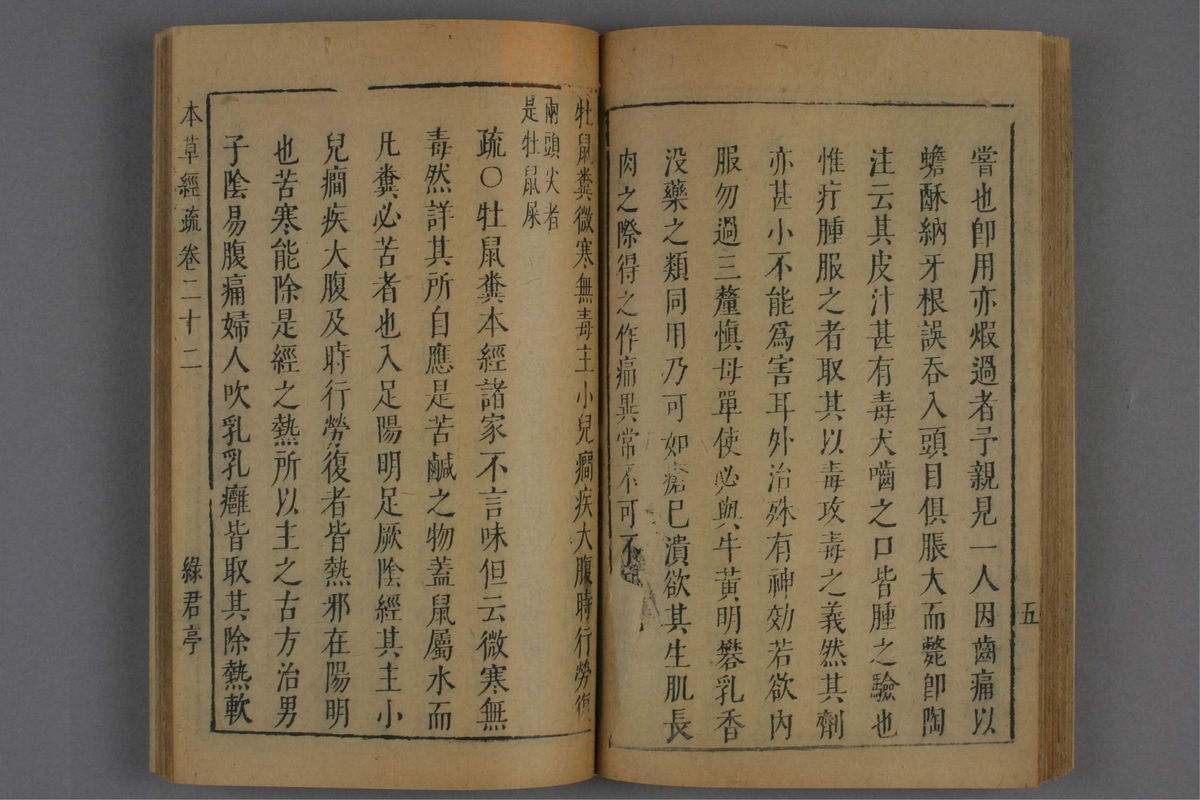 五
嘗也卽用亦煆過者予親見一人因齒痛以
蟾酥納牙根誤吞入頭目俱脹大而斃卽陶
注云其皮汁甚有毒犬嚙之口皆腫之驗也
惟疔腫服之者取其以毒攻毒之義然其劑
亦甚小不能爲害耳外治殊有神効若欲內
服勿過三釐慎毋單使必與牛黃明礬乳香
没藥之類同用乃可如瘡已潰欲其生肌長
肉之際得之作痛異常不可不
牡鼠糞微寒無毒主小兒癇疾大腹時行勞復
兩頭尖者
是牡鼠屎
疏○牡鼠糞本經諸家不言味但云微寒無
毒然詳其所自應是苦鹹之物蓋鼠屬水而
凡糞必苦者也入足陽明足厥陰經其主小
兒癇疾大腹及時行勞復者皆熱邪在陽明
也苦寒能除是經之熱所以主之古方治男
子陰易腹痛婦人吹乳乳癰皆取其除熱軟
本草經疏卷二十二
綠君亭